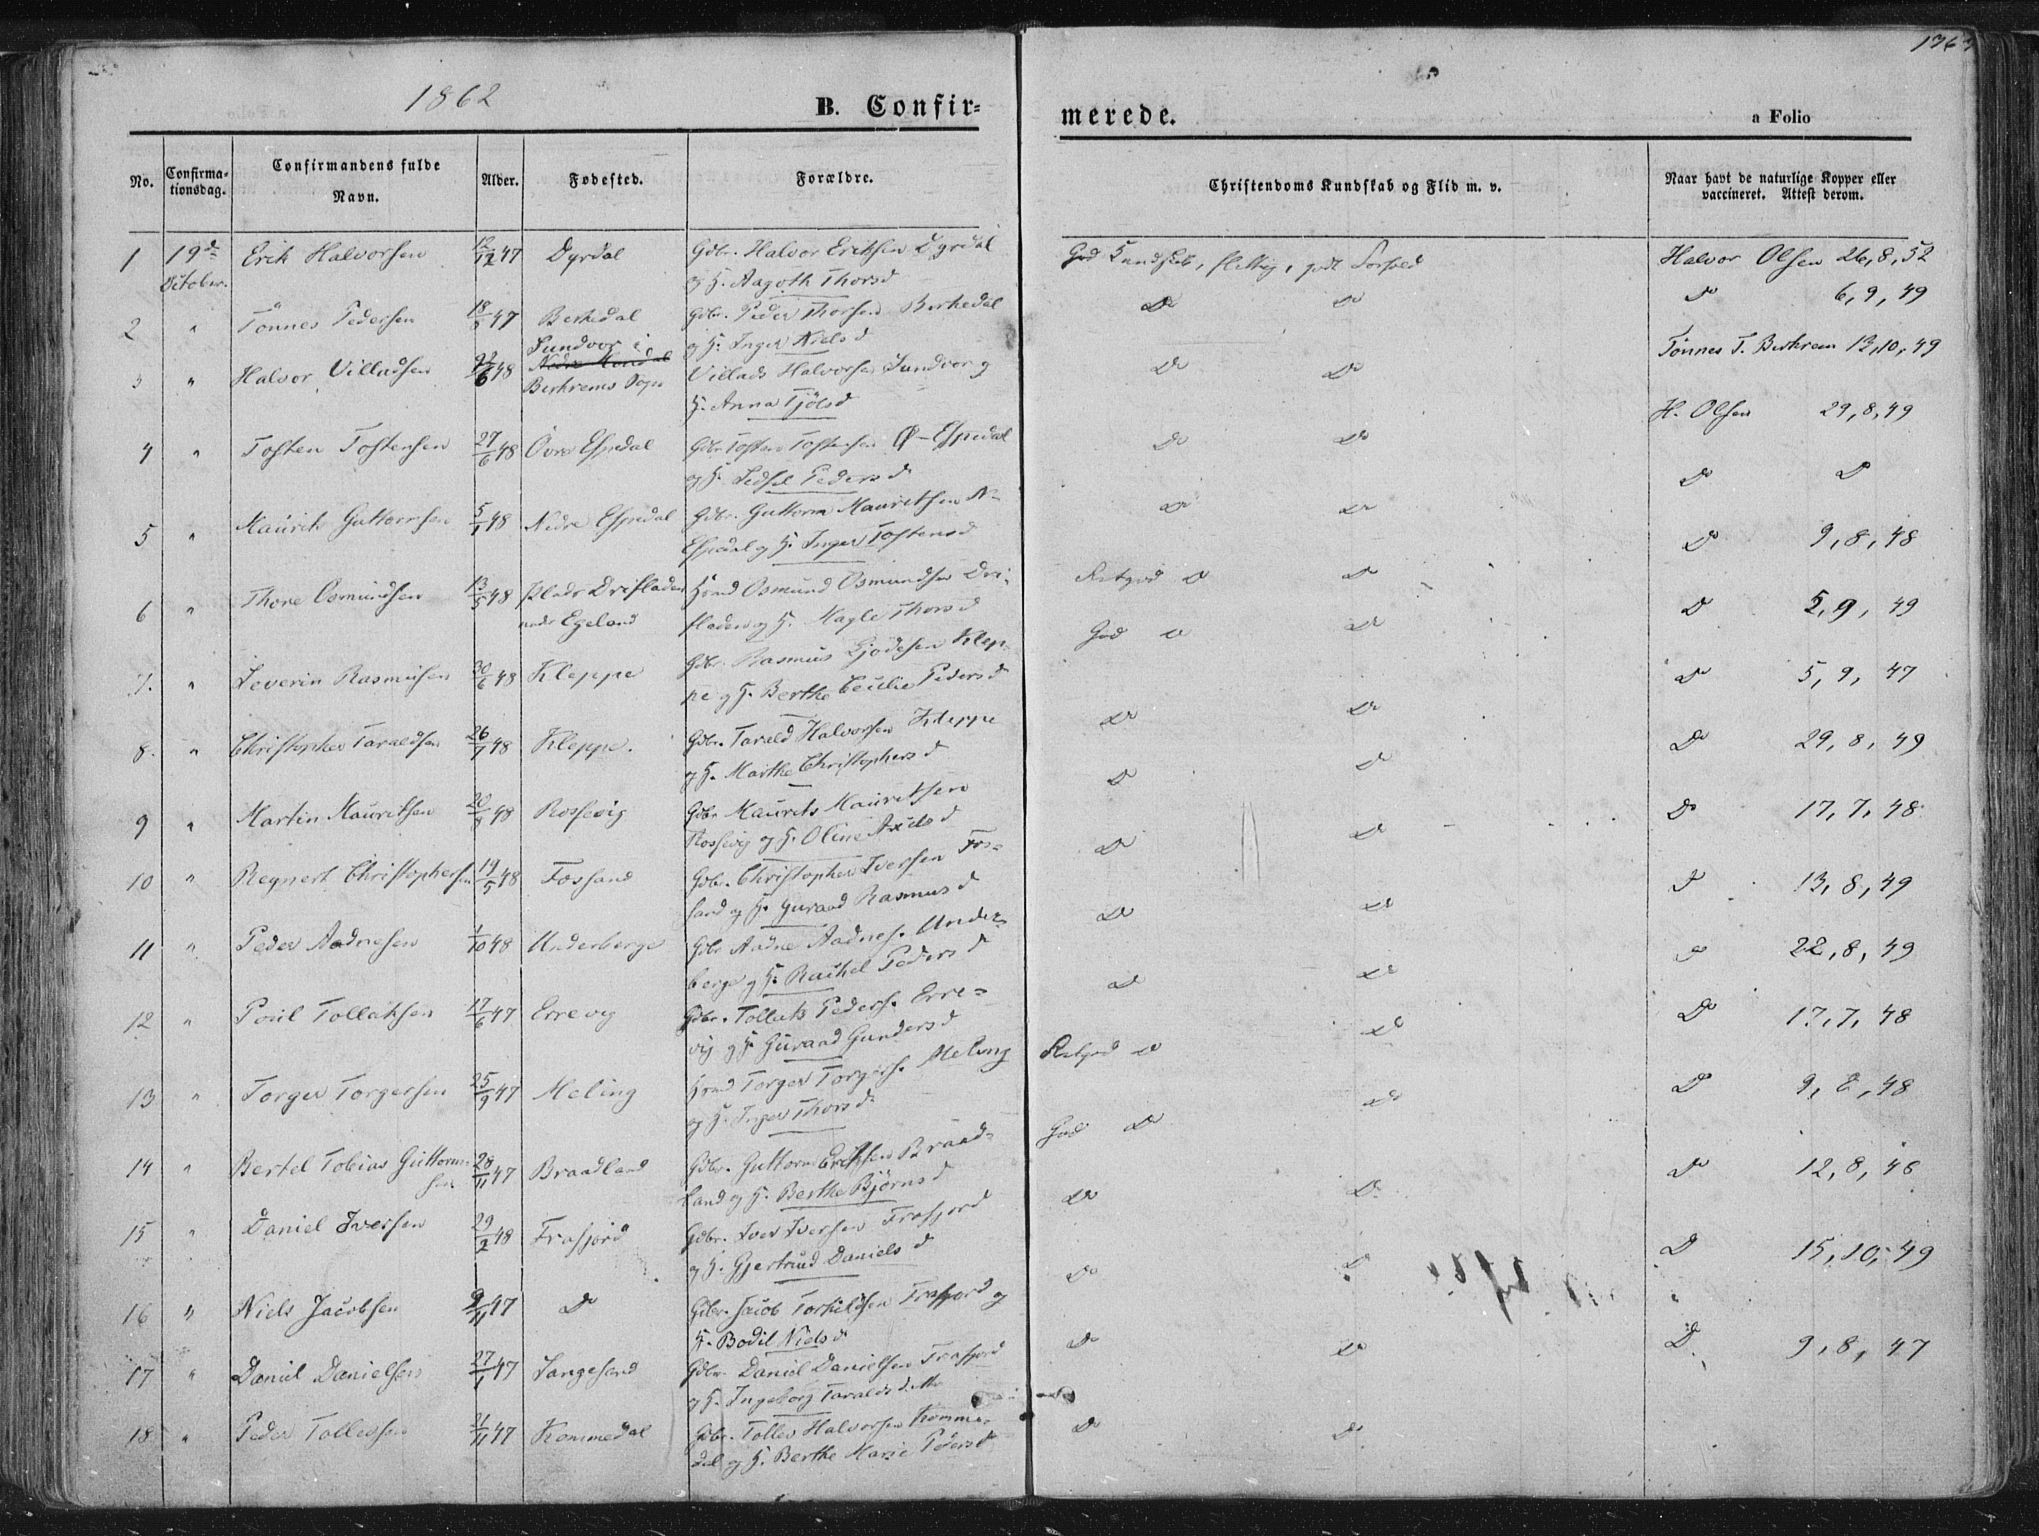 1862
B. Confir=
merede.
a Folio
No.
Confirma-
tionsdag.
Confirmandens fulde
Navn.
Alder.
Fødested.
Forældre.
Christendoms Kundskab og Flid m. v.
Naar havt de naturlige Kopper eller
vaccineret. Attest derom.
1 19de Erik Halvorsen 12/12 47 Dyrdal Gdbr. Halvor Eriksen Dyrdal God Kundskab, flittig, godt Forhold Halvor Olsen 26,8,52
October. og H. Aagoth Thorsd
2 " Tönnes Pedersen 18/5 47 Berkedal Gdbr. Peder Thorsen Berkedal Do Do Do 6,9,49
og H. Inger Nielsd
Sundvor i
3 " Halvor Villadsen 48 Nedre Villads Halvorsen Sundvor og Do Do Tönnes T. Berkrem 13,10,49
Berkrems Sogn H. Anna Tjölsd
4 " Tosten Tostensen 27/6 48 Övre Espedal Gdbr Tosten Tostensen Ø-Espedal Do Do H. Olsen 29,8,49
og H. Pedersd
5 " Maurits Guttormsen 5/1 48 Nedre Espedal Gdbr. Guttorm Mauritsen N- Do Do Do Do
Espedal og H. Inger Tostensd
6 " Thore Osmundsen 13/5 48 Plads Drifladen Hmd Osmund Osmundsen Dri- Do Do 9,8,48
under Egeland fladen og H. Magle Thorsd
7. " Severin Rasmusen 30/6 48 Kleppe Gdbr. Rasmus Gjödesen Klep- God Do Do Do 5,9,49
pe og H. Berthe Cecilie Pedersd
8. " Christopher Taraldsen 26/7 48 Kleppe. Gdbr. Tarald Halvorsen Kleppe Do Do Do 5,9,47
og H. Marthe Christophersd
9 " Martin Mauritsen 20/8 48 Rossevig Gdbr. Maurits Mauritsen Do Do Do 29,8,49
Rossevig og H. Oline Axelsd
10 " Regnert Christophersen 19/5 48 Fossand Gdbr. Christopher Iversen Fos- Do Do Do 17,7,48
sand og H. Guraad Rasmusd
11 " Peder Aadnesen 1/10 48 Underberge Gdbr Aadne Aadnes. Under- Do Do Do 13,8,49
berge og H. Rachel Pedersd
12 " Poul Tollaksen 17/6 47 Errevig Gdbr. Tollak Peders. Erre- Do Do Do 22,8,49
vig og H. Guraad Gundersd
13 " Torger Torgersen 25/9 47 Meling Hmd Torger Torgers. Meling Do Do Do 17,7,48
og H. Inger Thorsd
14 " Bertel Tobias Guttorm- 28/11 47 Braadland Gdbr. Guttorm Eriksen Braad- God Do Do Do 9,8,48
sen land og H. Berthe Björnsd
15 " Daniel Iversen 29/2 48 Frafjord Gdbr. Iver Iversen Frafjord Do Do Do 12,8,48
og H. Gjertrud Danielsd
16 " Niels Jacobsen 9/11 47 Do Gdbr. Jacob Torkildsen Frafjord og Do Do Do 15,10,49
H. Bodil Nielsd
17 " Daniel Danielsen 27/1 47 Gdbr. Daniel Danielsen Frafjord Do Do Do 9,8,47
og H. Ingeborg Taraldsdtter
18 " Peder Tollevsen 21/11 47 Kommedal Gdbr. Tollev Halvorsen Komme- Do Do
dal og H. Berthe Marie Pedersd